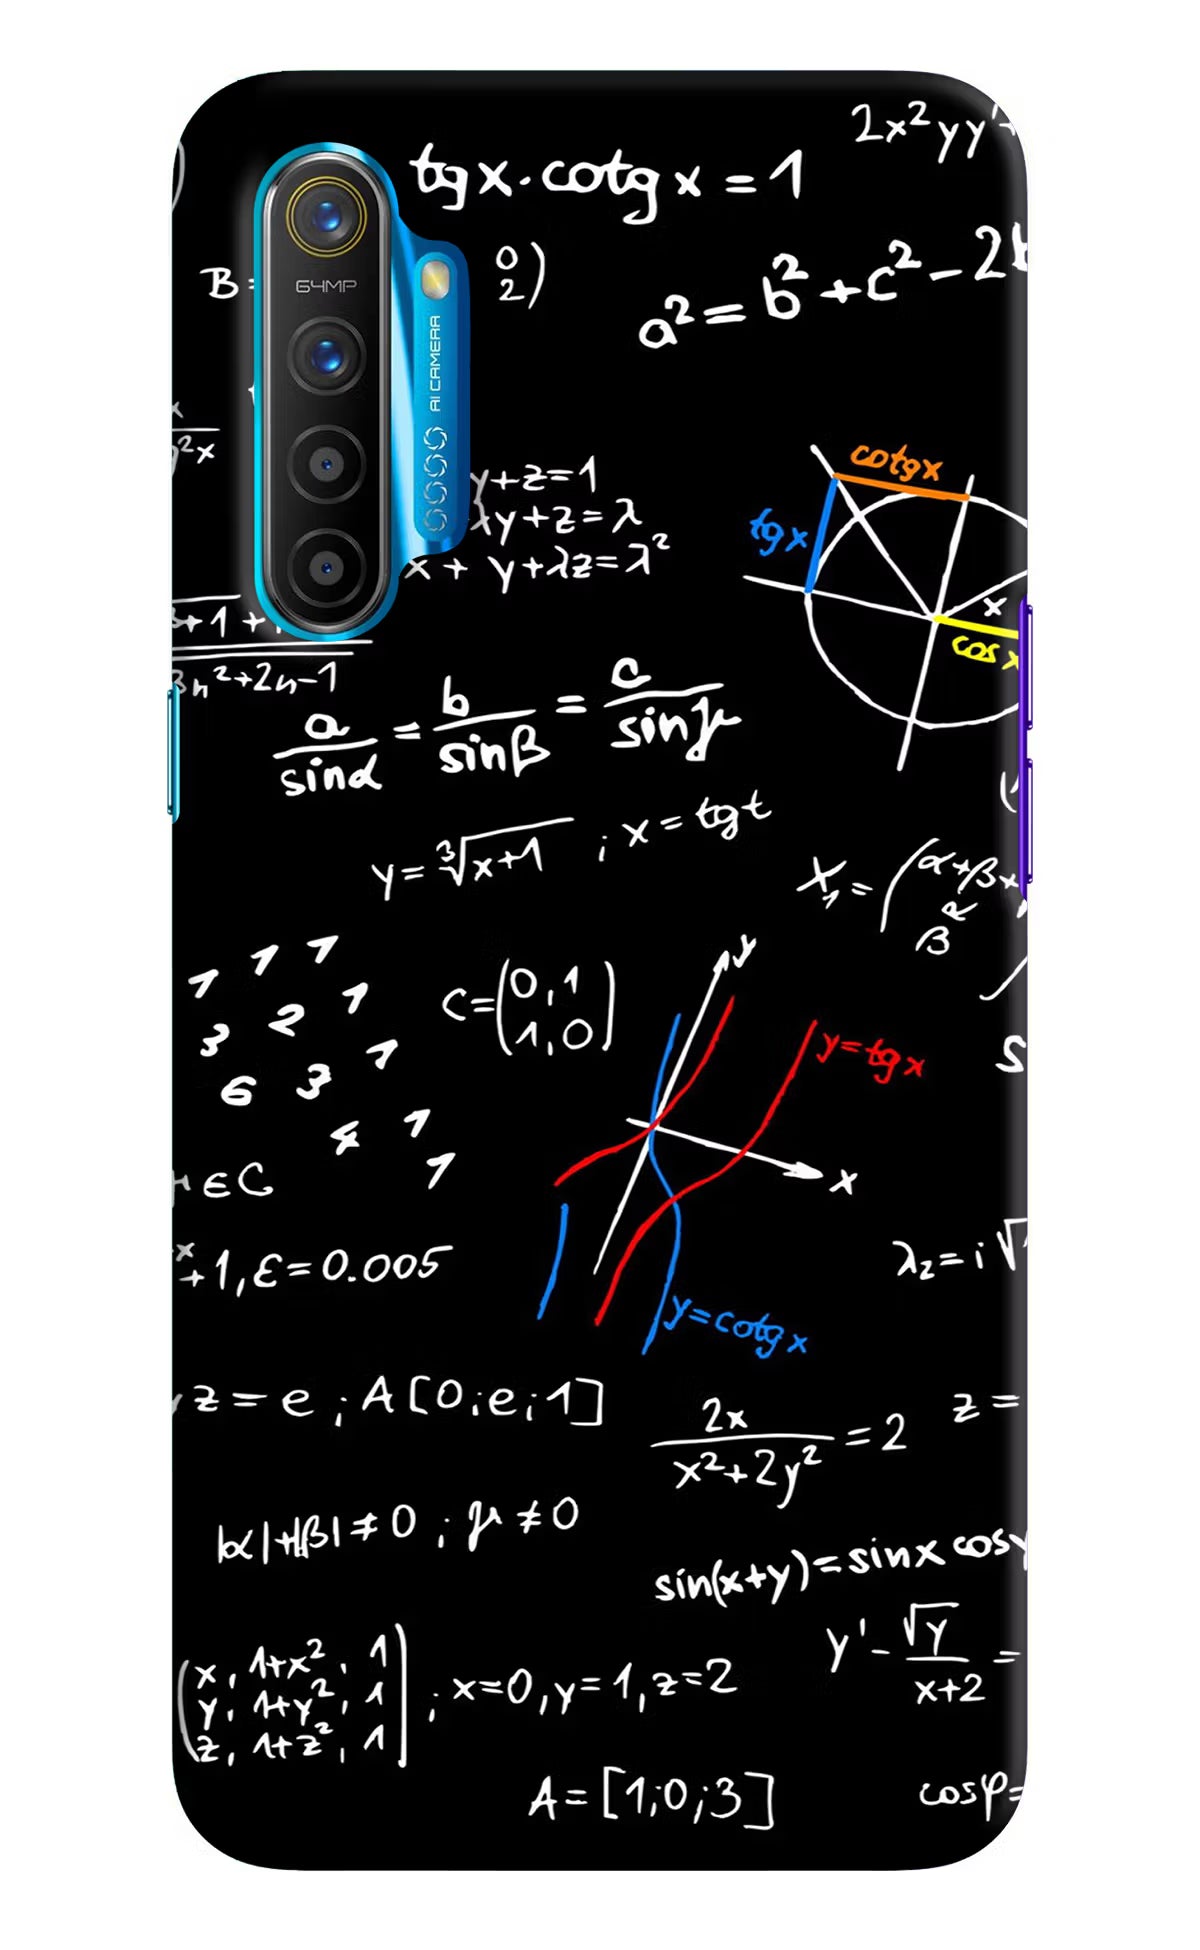 2x²yy'
tgx·cotgx = 1
B
0
2)
64MP
a² = b² + c² - 2
AI CAMERA
x
²x
cotgx
y+z=1
y+z=λ
x + y+λz=λ²
tgx
x
cosx
3+1+
3n²+2n-1
a/sinα = b/sinβ = c/sinγ
y=∛x+1 ; x=tgt
X₁ = (α+β+
β R
1 1 1
3 2 1
6 3 1
4 1
1
C=(0,1
1,0)
y
y=tgx
x
S
∈C
x
+1, ε=0.005
λ₂=i√
y=cotgx
z = e ; A[0;e;1]
2x/x²+2y² = 2
z =
|α|+|β|≠0 ; μ≠0
sin(x+y)=sinx cosy
y' - √y/x+2 =
(x, 1+x², 1
y, 1+y², 1
z, 1+z², 1) ; x=0, y=1, z=2
A=[1;0;3]
cosφ=